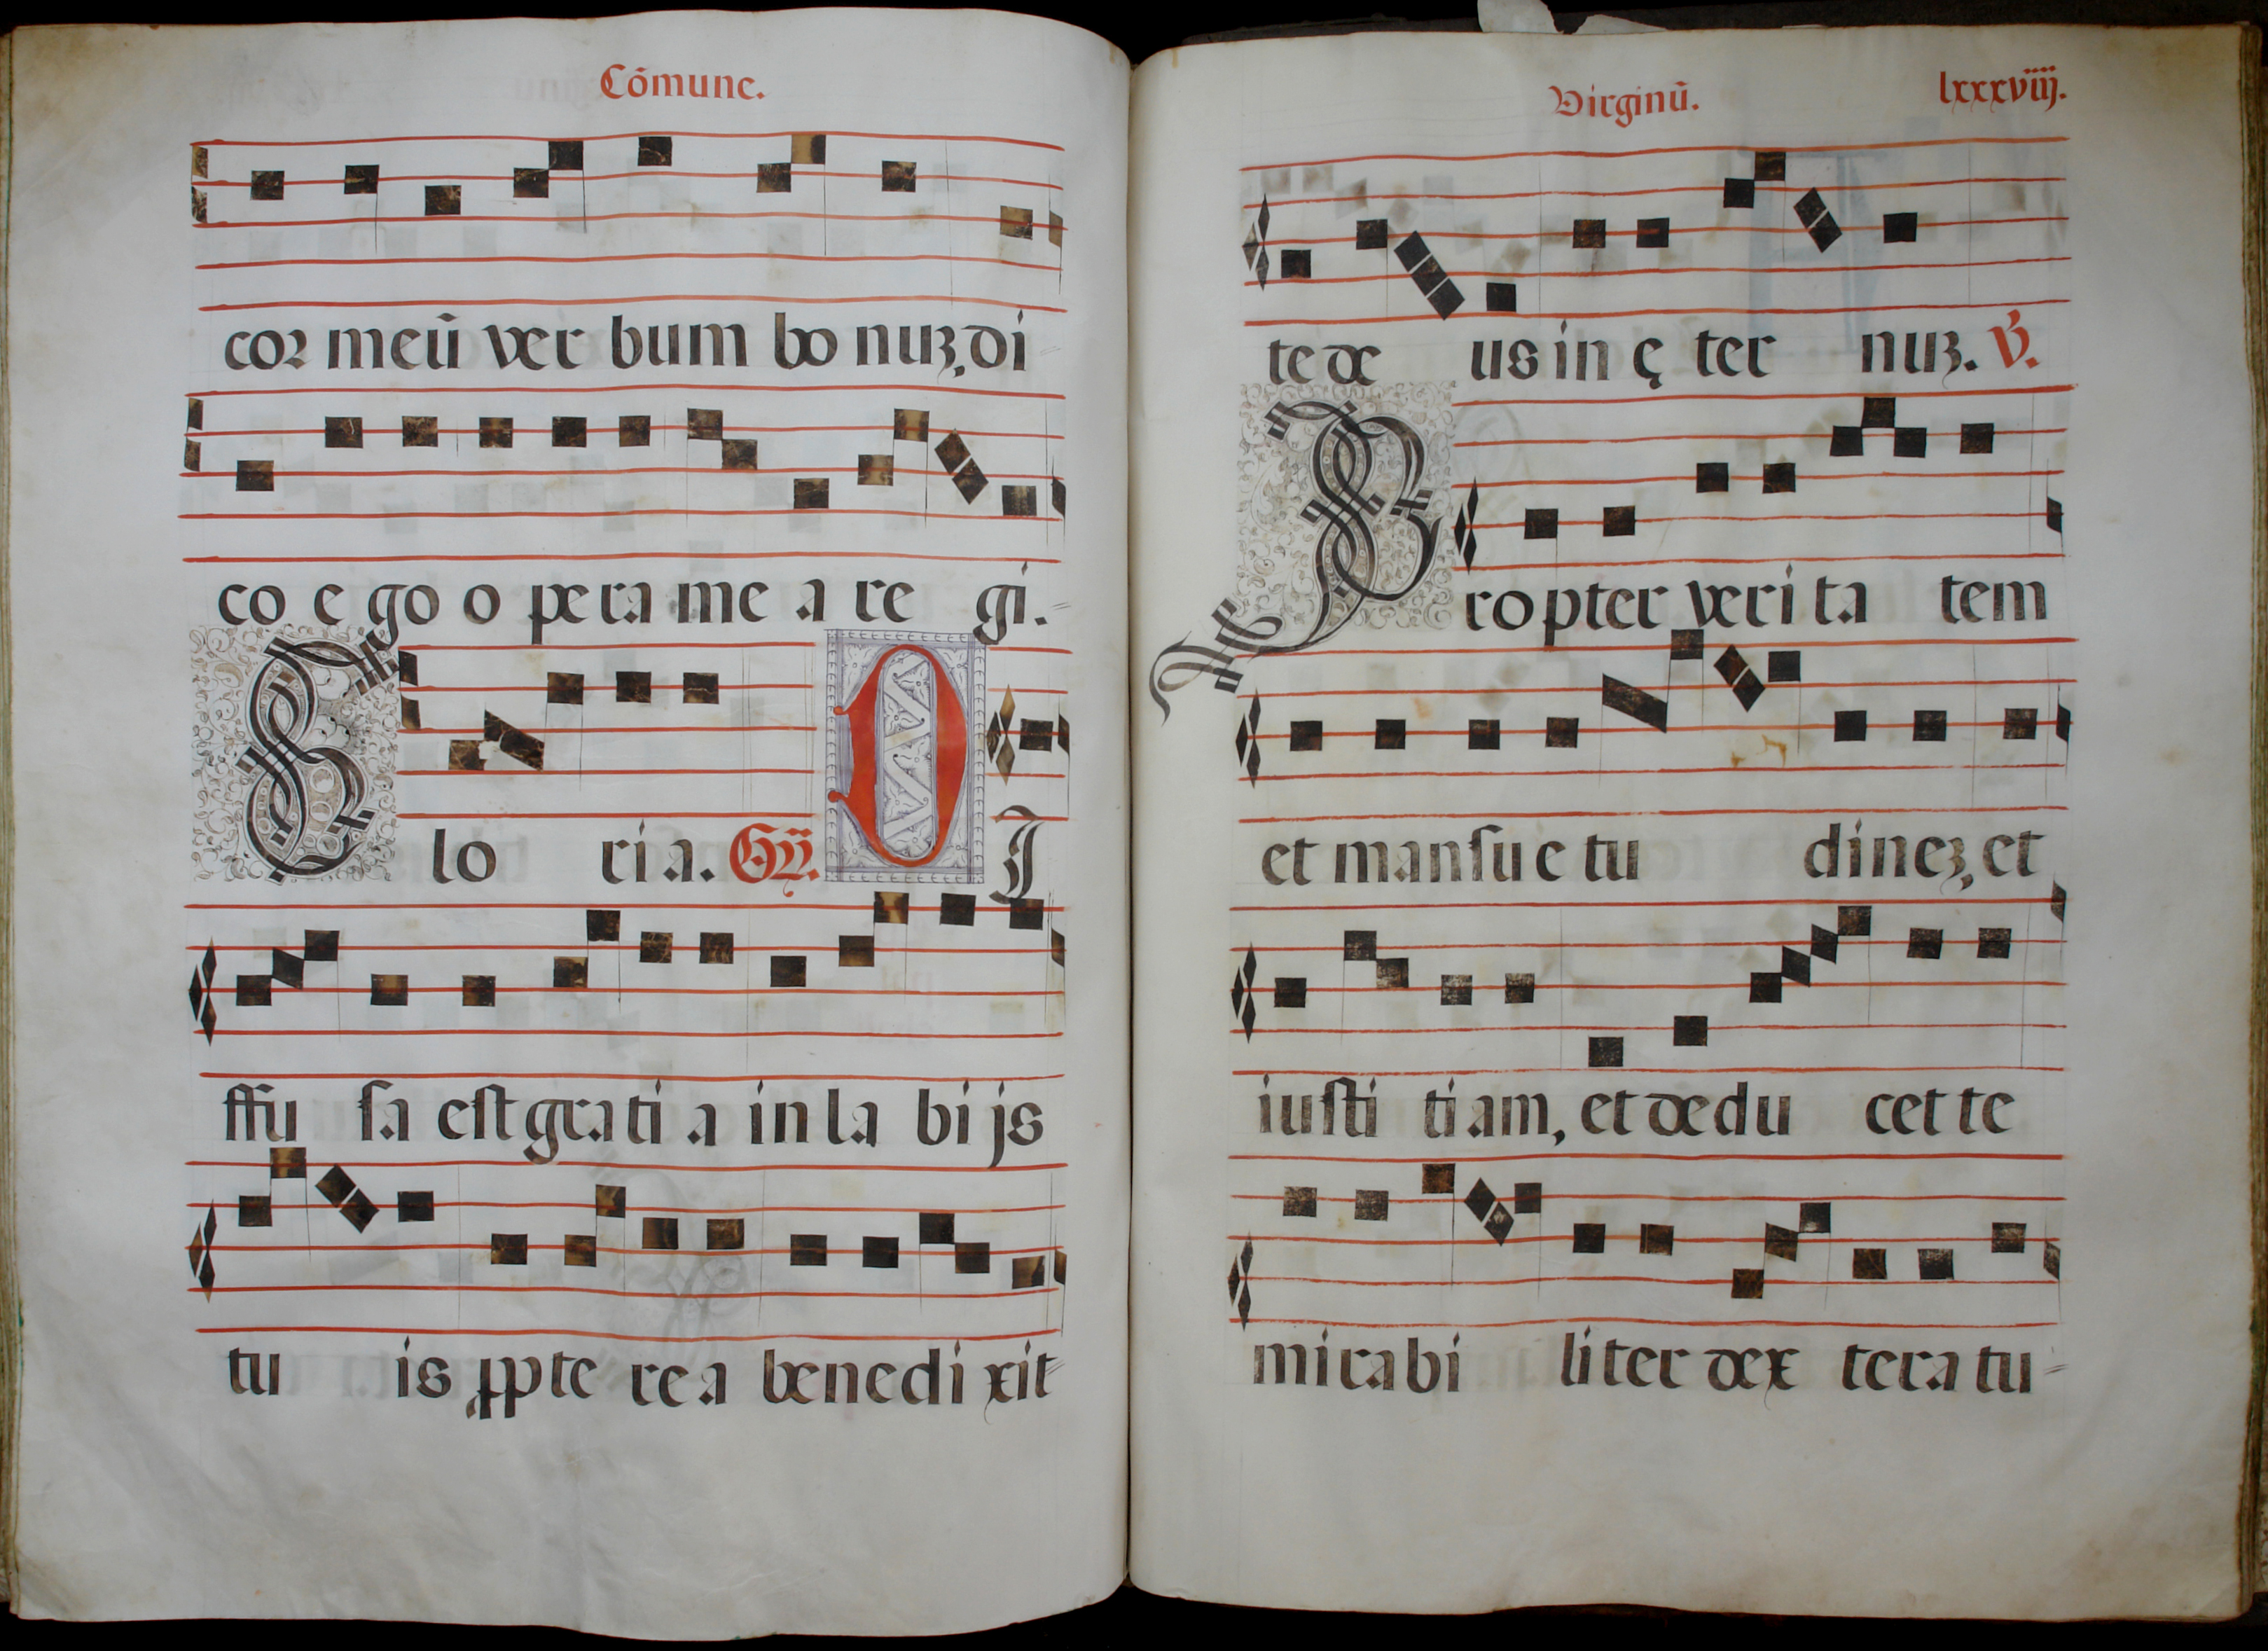 Cōmune.
cor meū ver bum bo nuz, di
co e go o pe ra me a re gi.
G lo ri a. Gỹ. D I
ffu sa est gra ti a in la bi js
tu is ꝓpte re a benedi xit
Virginū. lxxxviiij.
te de us in ę ter nuz. V.
P ro pter veri ta tem
et mansue tu dinez, et
iusti tiam, et dedu cet te
mirabi liter dex tera tu